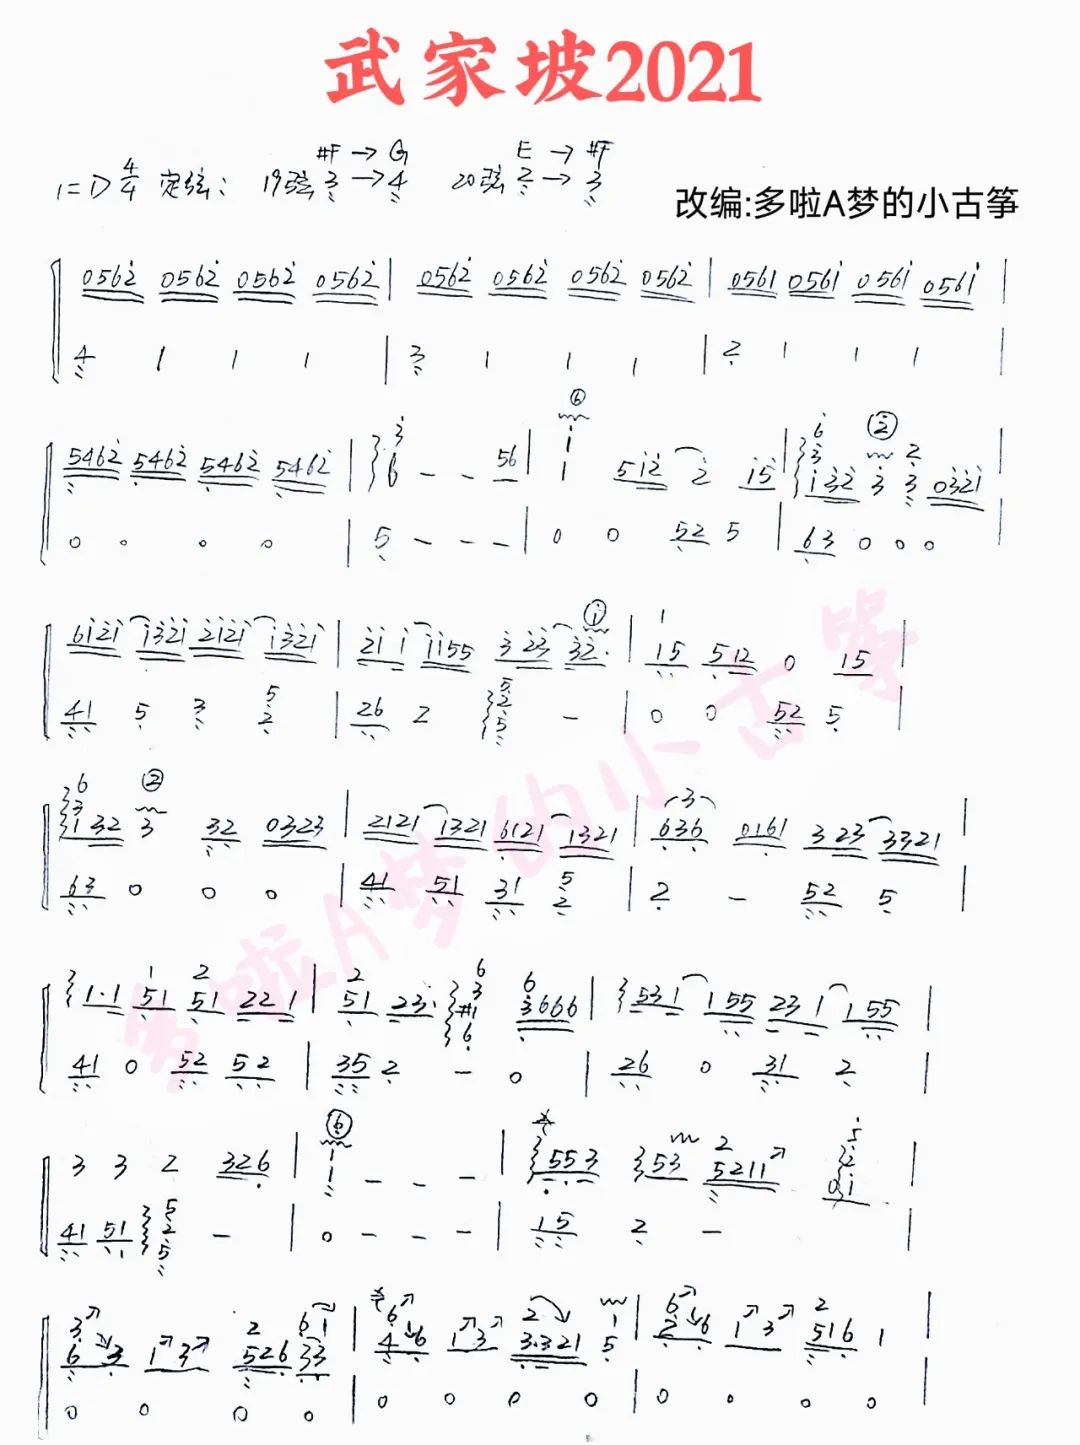 武家坡2021
#F → G E → #F
1=D 4/4 定弦: 19弦 3 → 4 20弦 2 → 3
改编:多啦A梦的小古筝
0562 0562 0562 0562 | 0562 0562 0562 0562 | 0561 0561 0561 0561 |
4 1 1 1 | 3 1 1 1 | 2 1 1 1 |
5462 5462 5462 5462 | 6 - - 56 | 1 512 2 15 | 132 3 3 0321
0 0 0 0 | 5 - - - | 0 0 52 5 | 63 0 0 0
6121 1321 2121 1321 | 21 1 1155 3 23 32. | 15 512 0 15 |
41 5 3 2 | 26 2 5 - | 0 0 52 5 |
132 3 32 0323 | 2121 1321 6121 1321 | 636 0161 3 23 3321 |
63 0 0 0 | 41 51 31 2 | 2 - 52 5 |
1·1 51 51 22 1 | 51 23· #1 3666 | 53 1 1 55 23 1 1 55 |
41 0 52 52 | 35 2 - 0 | 26 0 31 2 |
3 3 2 326 | 1 - - - | 553 53 5211 01 |
41 51 5 - | 0 - - - | 15 2 - |
6 3 1 3 526 33 | 4 6 1 3 3·321 5 | 2 6 1 3 516 1 |
0 0 0 0 | 0 0 0 0 | 0 0 0 0 |
多啦A梦的小古筝